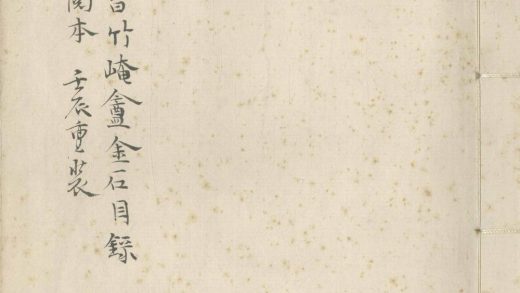 竹崦盦金石目錄
本 壬辰重裝